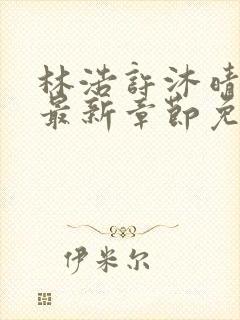 林浩許沐晴
最新章節免
伊米尔